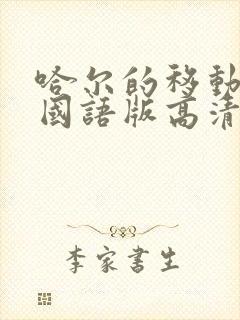 哈尔的移動
國語版高清
李家書生